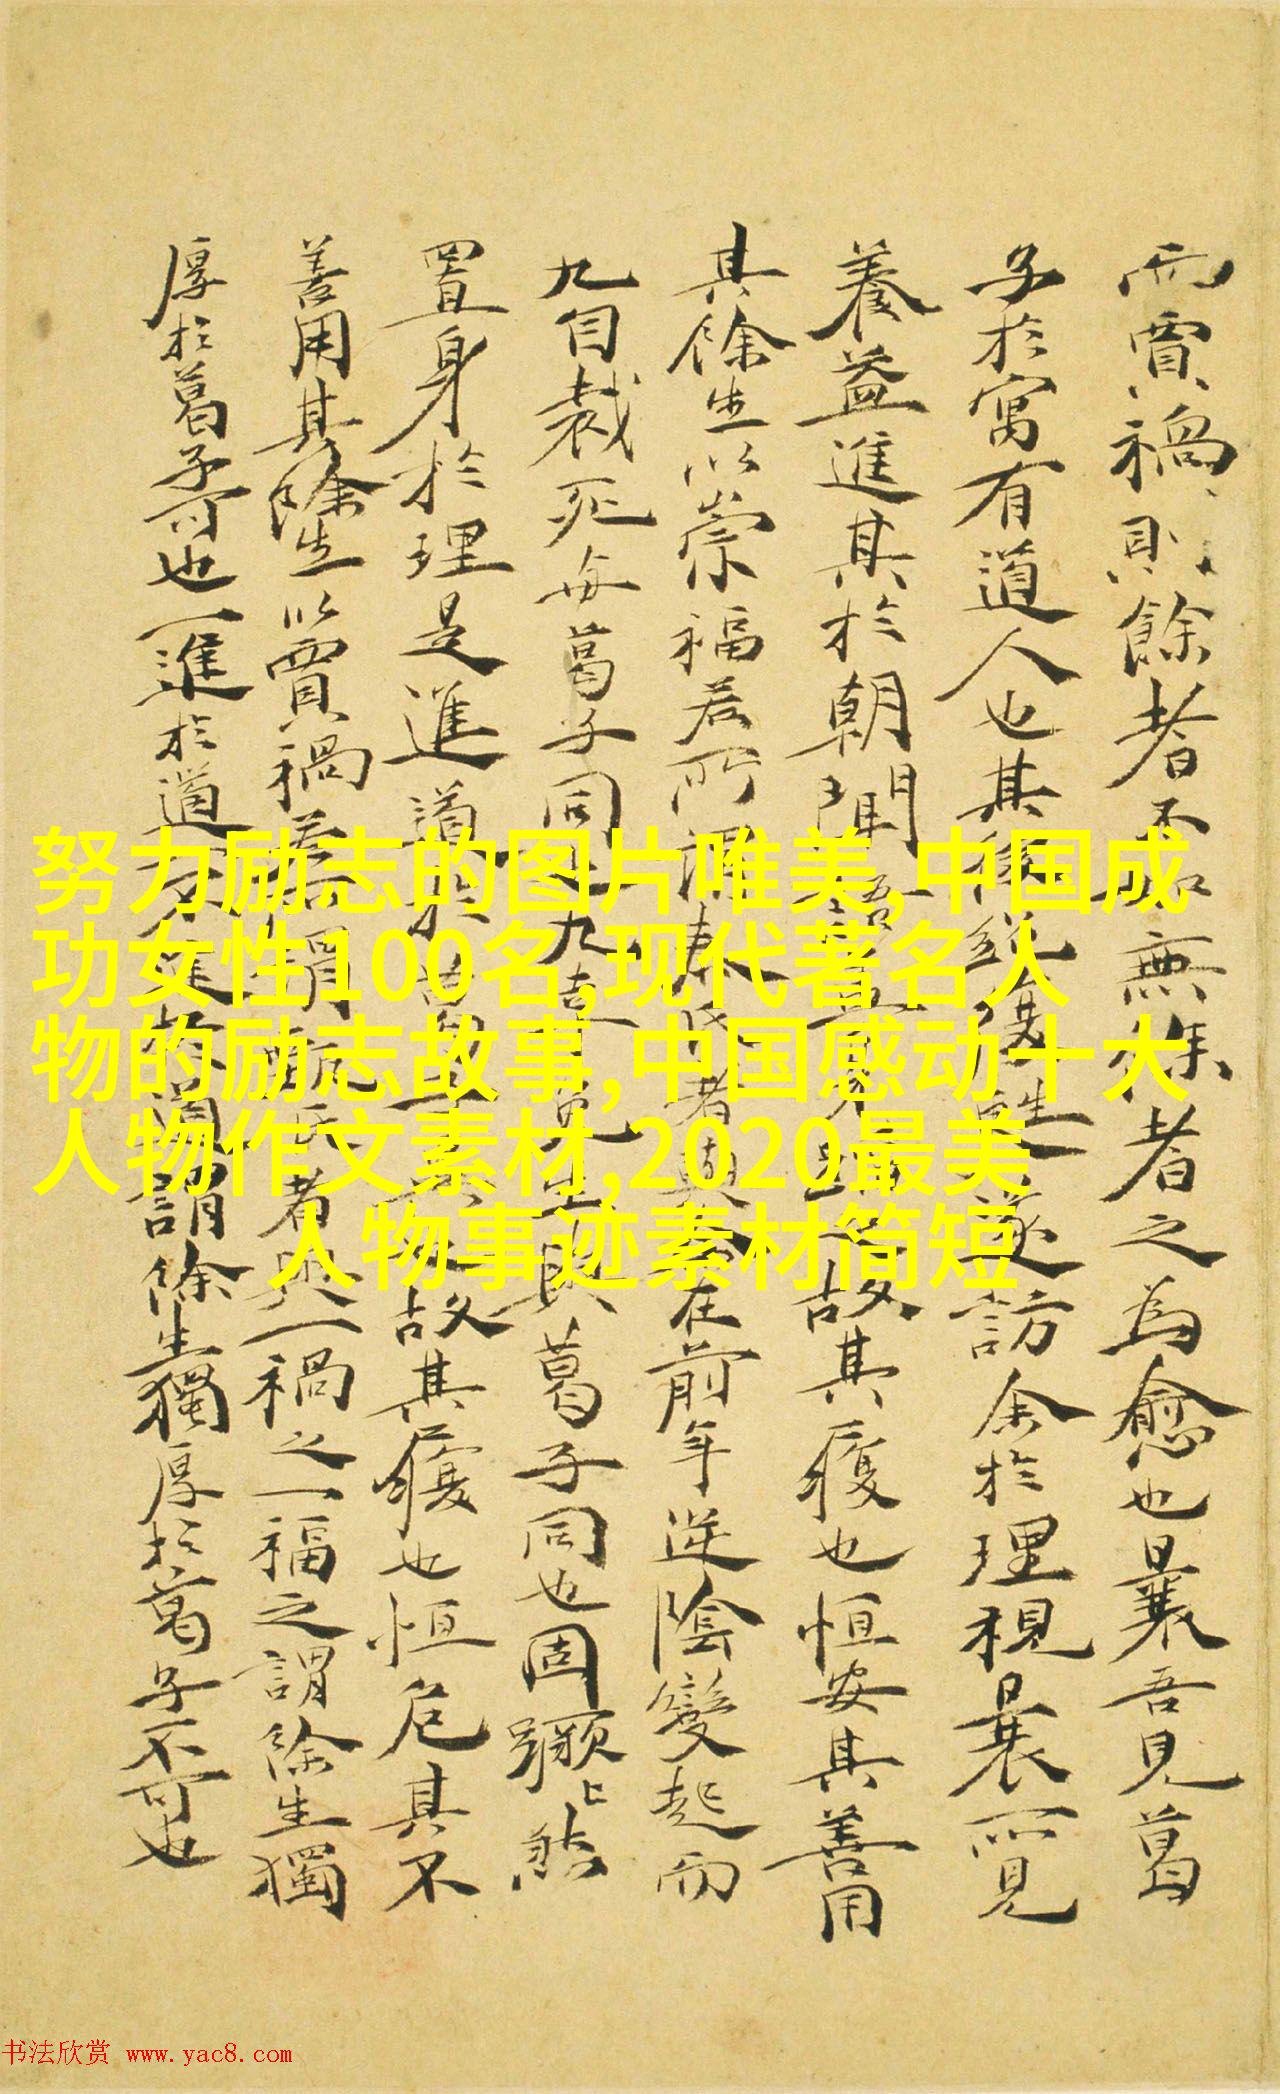 而賈禍則餘者不如無餘者之為愈也曩吾見葛
子於寓有道人也其後復遂訪余於理視曩所見
養益進其於朝聞語益故其履也恒安其善用
其餘生以崇福若所謂者與在前年逆陰變起而
九自裁死與葛子同九免與葛子同也固
置身於理是進道於葛故其履也恒危其不
善用其餘生以賈禍若所謂甄氏者與一禍之一福之謂餘生獨
厚於葛子可也一進於道一不進於道謂餘生獨厚於葛子不可也
努力励志的图片唯美,中国成
功女性100名,现代著名人
物的励志故事,中国感动十大
人物作文素材,2020最美
人物事迹素材简短
书法欣赏 www.yac8.com